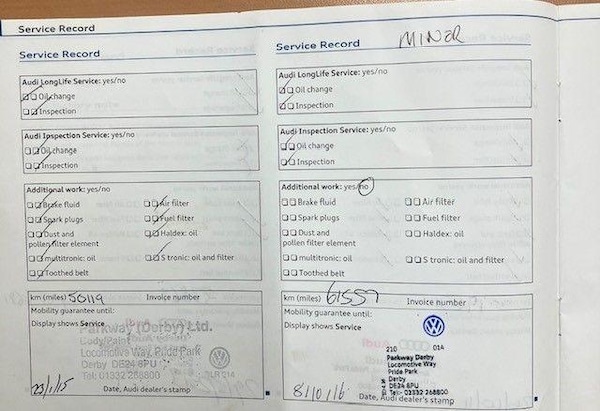 Service Record
Service Record
Audi LongLife Service: yes/no
Oil change
Inspection
Audi Inspection Service: yes/no
Oil change
Inspection
Additional work: yes/no
Brake fluid
Air filter
Spark plugs
Fuel filter
Dust and
pollen filter element
Haldex: oil
multitronic: oil
S tronic: oil and filter
Toothed belt
km (miles) 50119 Invoice number
Mobility guarantee until:
Display shows Service
Parkway (Derby) Ltd.
Locomotive Way, Pride Park
Derby DE24 8PU
Tel: 01332 268800
Date, Audi dealer's stamp
23/1/15
Service Record MINOR
Audi LongLife Service: yes/no
Oil change
Inspection
Audi Inspection Service: yes/no
Oil change
Inspection
Additional work: yes/no
Brake fluid
Air filter
Spark plugs
Fuel filter
Dust and
pollen filter element
Haldex: oil
multitronic: oil
S tronic: oil and filter
Toothed belt
km (miles) 61559 Invoice number
Mobility guarantee until:
Display shows Service
210 01A
Parkway Derby
Locomotive Way
Pride Park
Derby
DE24 8PU
Tel:- 01332 268800
Date, Audi dealer's stamp
8/10/16